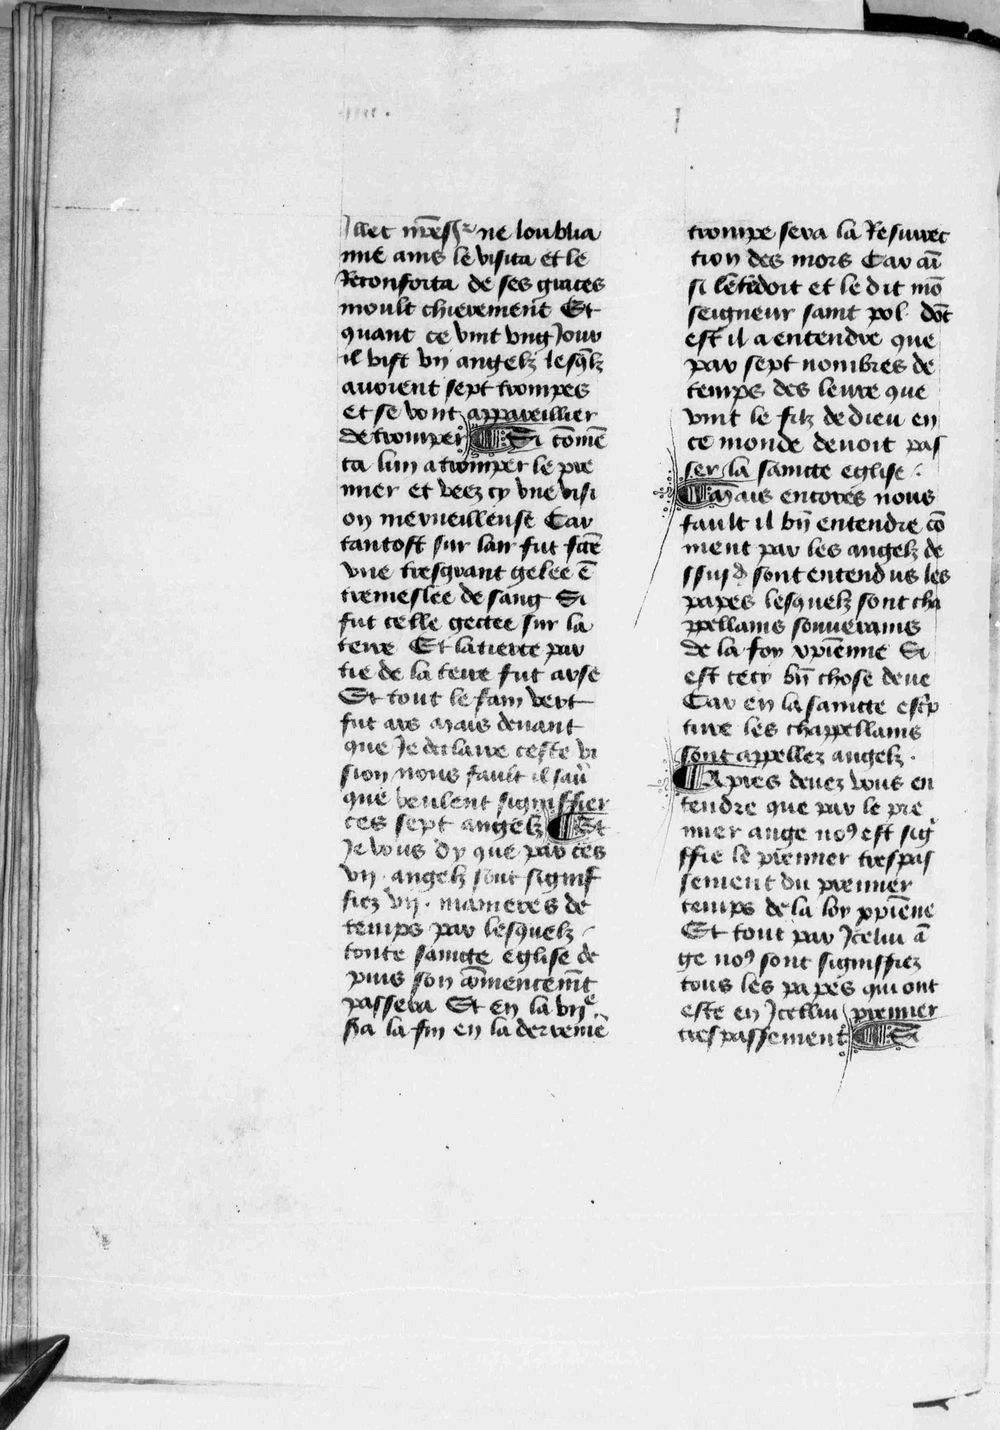 Illec nr̄eSr ne loublia
mie ains le visita et le
Reconforta de ses graces
moult chierement Et
quant ce vint vng Jour
il vist vij angelz lesq̄lz
auoient sept trompes
et se vont appareillier
de tromper Si cōmē
ca lun a tromper le pre
mier et veez cy vne visi
on merueilleuse Car
tantost sur lair fut fc̄e
vne tresgrant gelee ē
tremeslee de sang Si
fut celle gectee sur la
terre Et la tierce par
tie de la terre fut arse
Et tout le fain vert
fut ars mais deuant
que Je declaire ceste vi
sion nous fault il sau̾
que veulent signiffier
ces sept angelz Et
Je vous dy que par ces
vij. angelz sont signif
fiez vij. manieres de
temps par lesquelz
toute saincte eglise de
puis son cōmencemt̄
passera Et en la vije
s̾a la fin en la derreniē
trompe sera la Resurrec
tion des mors Car aī
si lētēdoit et le dit mō
seigneur saint pol. dōt
est il a entendre que
par sept nombres de
temps des leure que
vint le filz de dieu en
ce monde deuoit pas
ser la saincte eglise.
mais encores nous
fault il bn̄ entendre cō
ment par les angelz de
ssusd sont entendus les
papes lesquelz sont cha
ppellains souuerains
de la foy xpīenne Si
est cecy bn̄ chose deue
Car en la saincte esc̄p
ture les chappellains
sont appellez angelz.
Apres deuez vous en
tendre que par le pre
mier ange noꝰ est sig̾
ffie le premier trespas
sement du premier
temps de la loy xpīene
Et tout par Icelui ā
ge noꝰ sont signiffiez
tous les papes qui ont
este en Icellui premier
trespassement Si